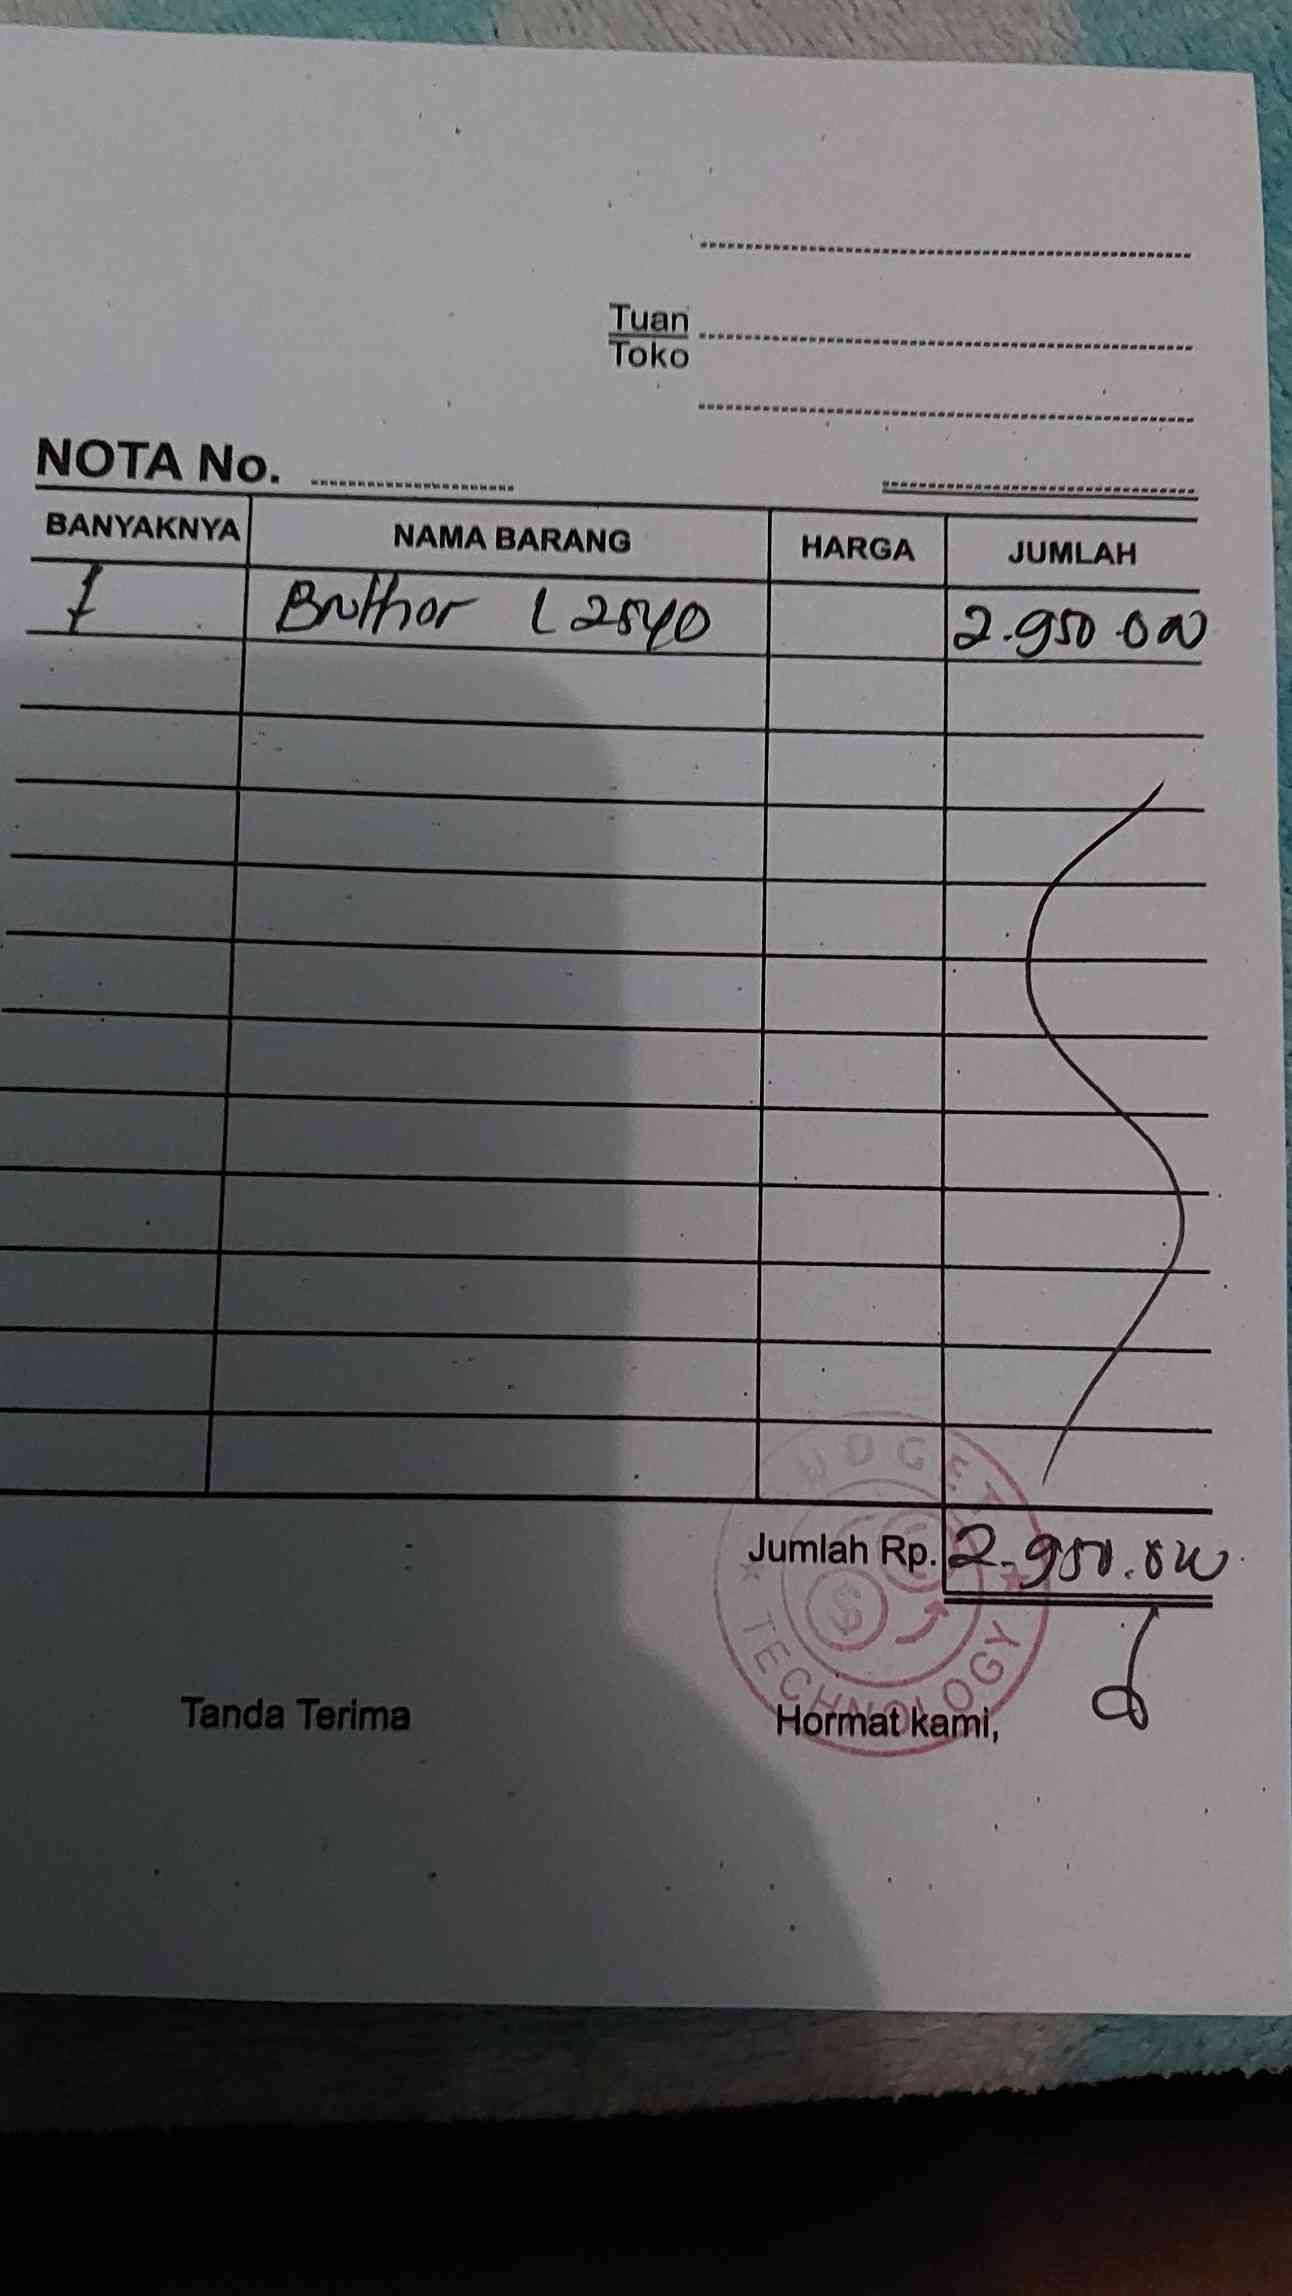 Tuan
Toko
NOTA No.
BANYAKNYA NAMA BARANG HARGA JUMLAH
1 Brother L2540 2.950.000
Jumlah Rp. 2.950.000
UDGET
TECHNOLOGY
Tanda Terima Hormat kami,